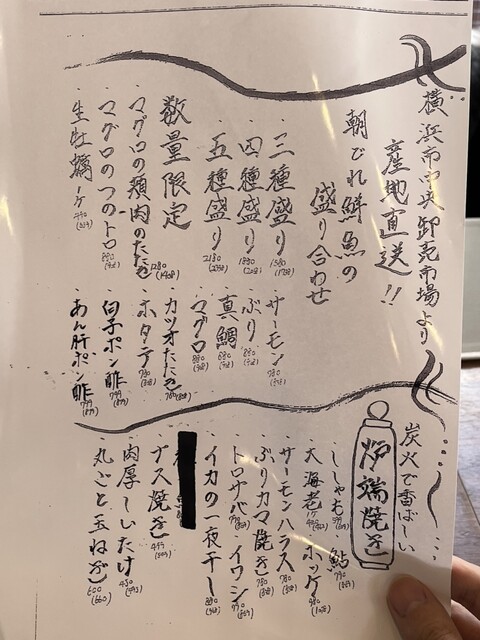 横浜市中央卸売市場より
産地直送!!
朝どれ鮮魚の
盛り合わせ
・三種盛り 1580
・四種盛り 1880
・五種盛り 2180
数量限定
・マグロの頬肉のたたき 1280
・マグロのつのトロ 880
・生牡蠣一ケ
・サーモン 780
・ぶり
・真鯛
・マグロ 880
・カツオたたき 780
・ホタテ 780
・白子ポン酢 799
・あん肝ポン酢 799
炭火で香ばしい
炉端焼き
・ししゃも
・鮎 790
・大海老1ケ
・ホッケ 980
・サーモンハラス 780
・ぶりカマ焼き 780
・トロサバ
・イワシ
・イカの一夜干し 880
・ナス焼き 499
・肉厚しいたけ 450
・丸ごと玉ねぎ 600 (660)